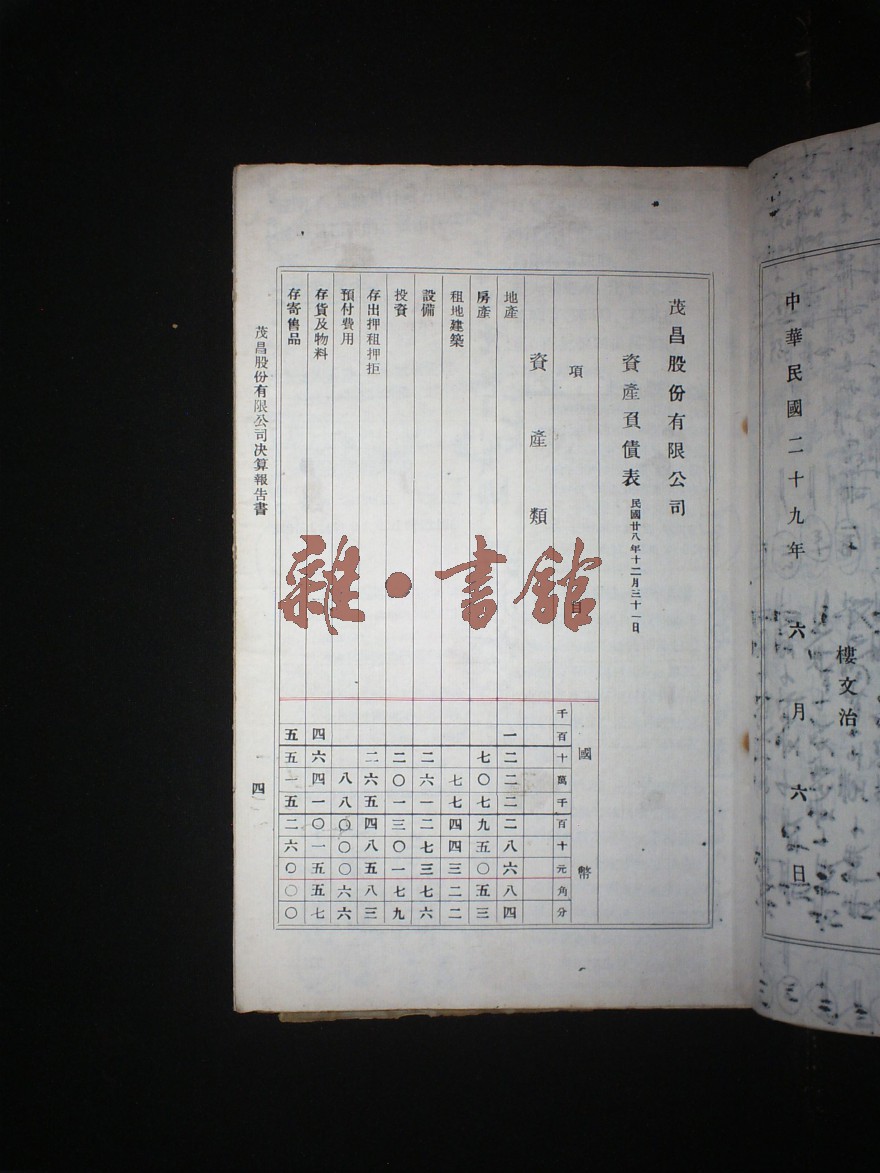 樓文治
中華民國二十九年 六月六日
茂昌股份有限公司
資產負債表 民國廿八年十二月三十一日
項目 國幣
千百十萬千百十元角分
資產類
地產 一二二二二八六八四
房產 七〇七九五〇五三
租地建築 七七四四三二二
設備 二六一二七三七六
投資 二〇一三〇一七九
存出押租押拒 二六五四八五八三
預付費用 八八〇〇〇六六
存貨及物料 四六四一〇一五五七
存寄售品 五五一五二六〇〇〇
茂昌股份有限公司決算報告書 四
雜·書館